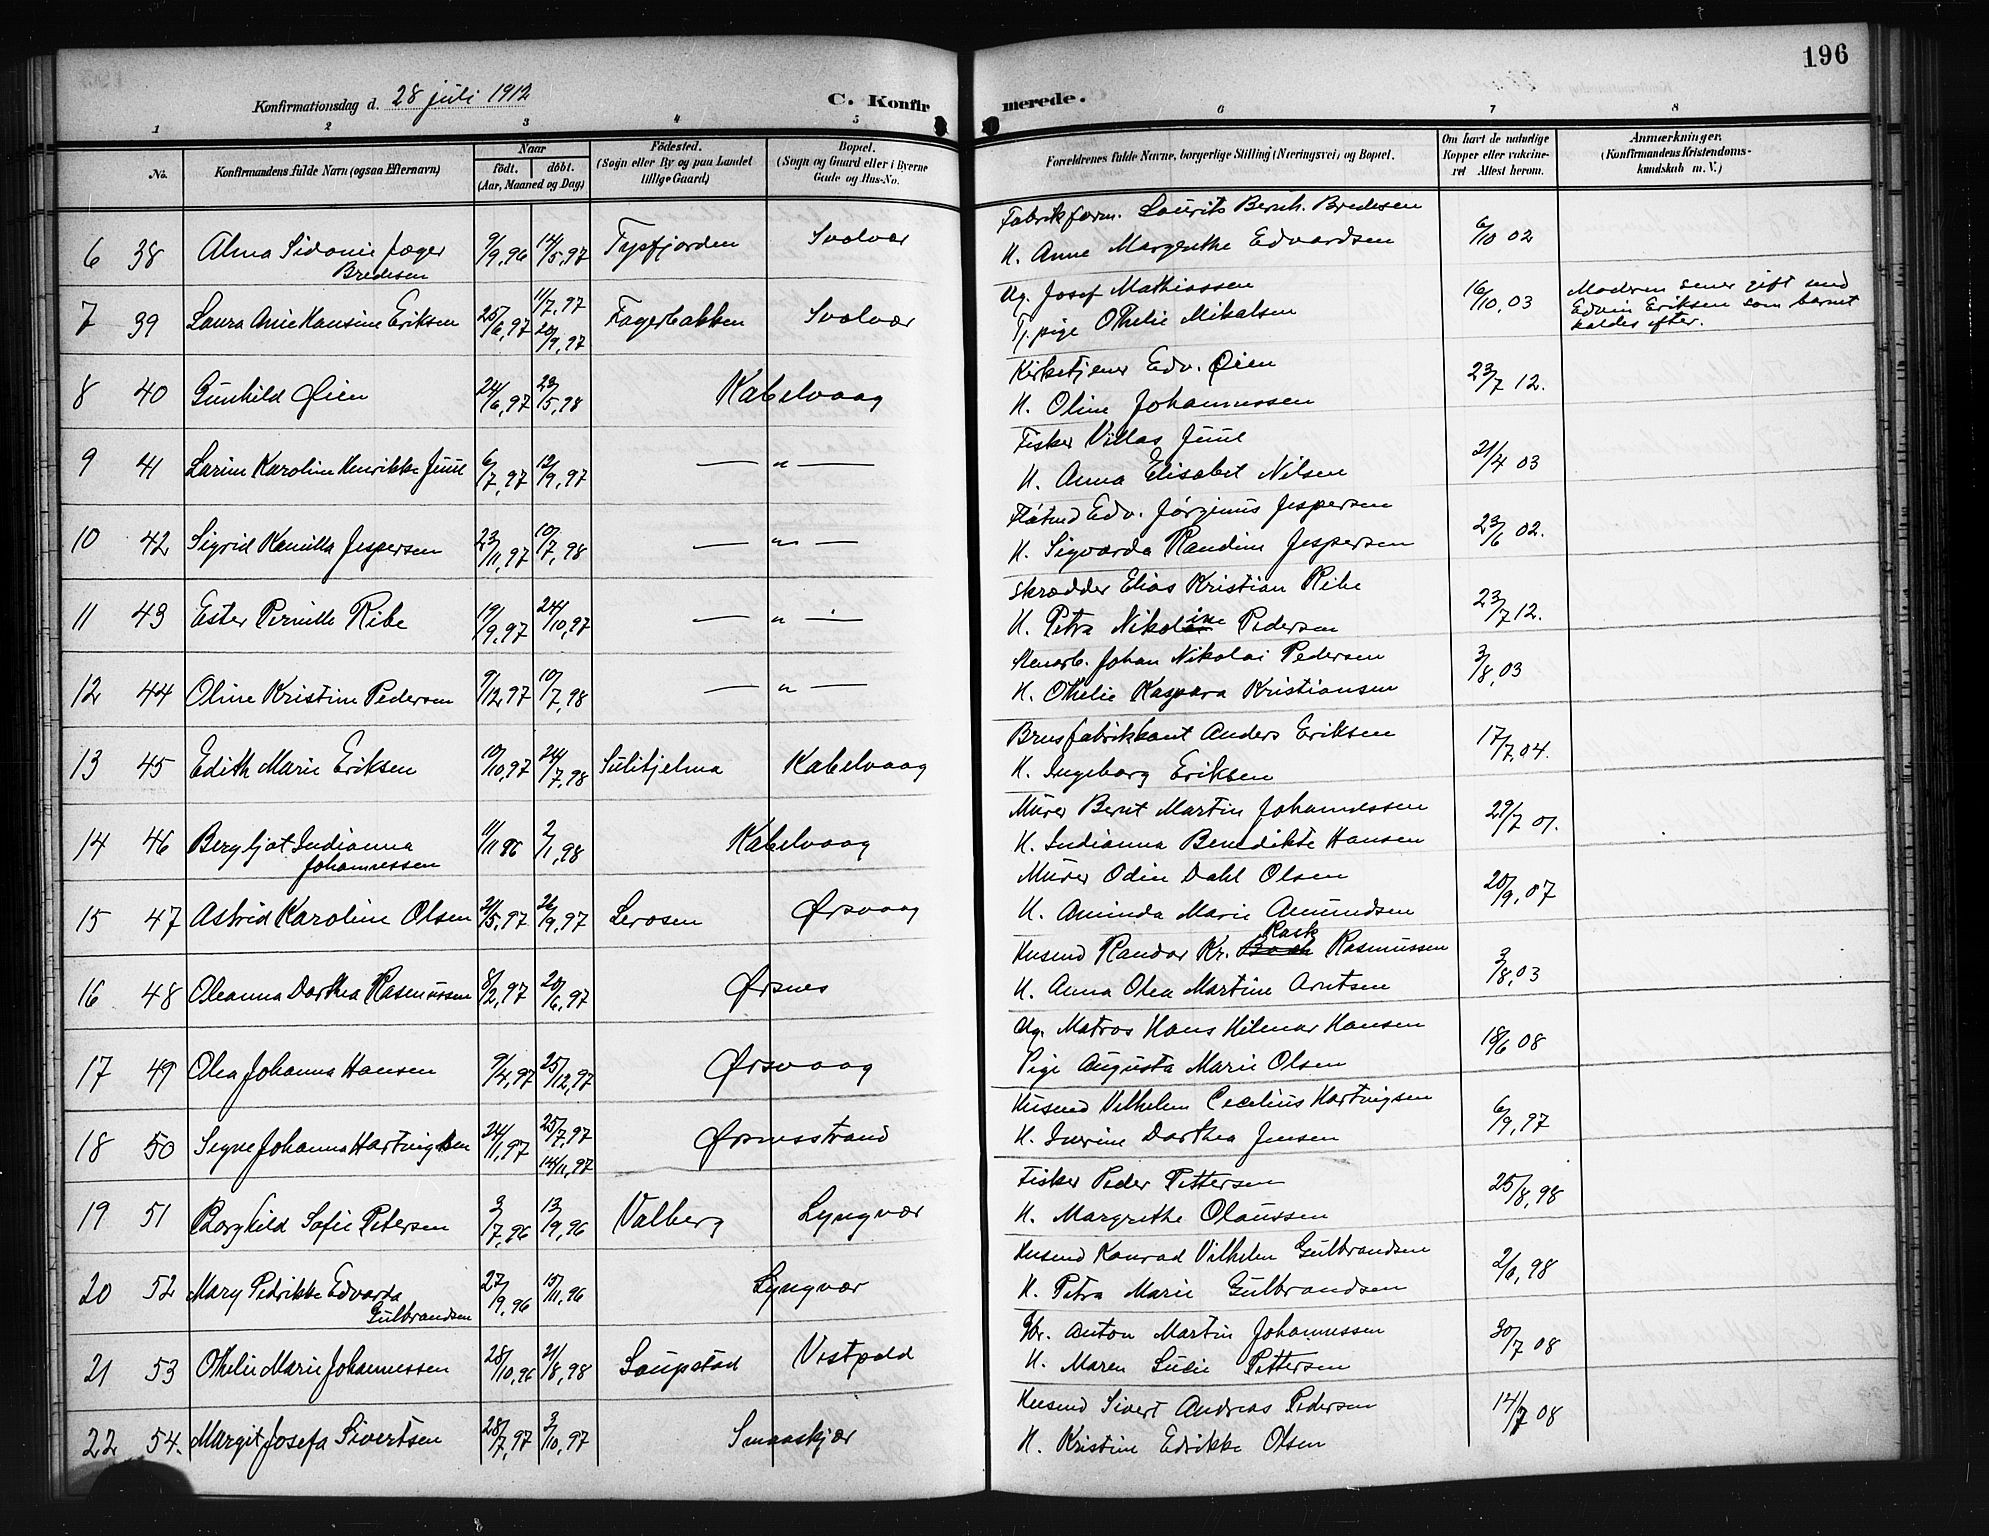 196
Konfirmationsdag d. 28 juli 1912
C. Konfirmerede.
1 2 3 4 5 6 7 8
No. Konfirmandens fulde Navn (ogsaa Efternavn)
Naar
født. døbt.
(Aar, Maaned og Dag)
Fødested.
(Sogn eller By og paa Landet
tillige Gaard)
Bopæl.
(Sogn og Gaard eller i Byerne
Gade og Hus-No.
Forældrenes fulde Navne, borgerlige Stilling (Næringsvei) og Bopæl.
Om havt de naturlige
Kopper eller vakcine-
ret Attest herom.
Anmærkninger.
(Konfirmandens Kristendoms-
kundskab m. V.)
6 38 Alma Sidonie Jæger Bredesen 9/9,96 14/5,97 Tysfjorden Svolvær
Fabrikform. Laurits Bernh. Bredesen
H. Anne Margrethe Edvardsen
6/10 02
7 39 Laura Anie Hansine Eriksen 25/6,97 11/7,97 20/9,97 Fagerbakken Svolvær
Ug. Josef Mathiassen
Tj. pige Othelie Mikalsen
16/10,03
Modren sener gift med
Edvin Eriksen som barnet
kaldes efter.
8 40 Gunhild Øien 24/6,97 23/5,98 Kabelvaag
Kirketjener Edv. Øien
H. Oline Johannessen
23/7 12.
9 41 Larine Karoline Henrikke Juul 6/7,97 12/9,97 — " —
Fisker Villas Juul
H. Anna Elisabet Nilsen
21/4 03
10 42 Sigrid Kamilla Jespersen 23/11,97 10/7,98 — " —
Edv. Jørginus Jespersen
H. Sigvarda Randine Jespersen
23/6 02.
11 43 Ester Pernille Ribe 19/9,97 24/10,97 — " —
Skrædder Elias Kristian Ribe
H. Petra Nikoline Pedersen
23/7 12.
12 44 Oline Kristine Pedersen 9/12,97 10/7,98 — " —
Johan Nikolai Pedersen
H. Othelie Kaspara Kristiansen
3/8,03
13 45 Edith Marie Eriksen 10/10,97 24/7,98 Sulitjelma Kabelvaag
Brusfabrikkant Anders Eriksen
H. Ingeborg Eriksen
17/7,04.
14 46 Bergljot Indianna Johannessen 11/11 86 2/1,98 Kabelvaag
Murer Bernt Martin Johannessen
H. Indianna Benedikte Hansen
29/7 01.
15 47 Astrid Karoline Olsen 21/5,97 26/9,97 Lerosen Ørsvaag
Murer Odin Dahl Olsen
H. Aminda Marie Amundsen
20/9,07
16 48 Oleanna Dorthea Rasmussen 8/2,97 20/6,97 Ørsnes
Husmd Randor Kr. Rask Rasmussen
H. Anna Olea Martine Arntsen
3/8,03
17 49 Olea Johanna Hansen 9/4,97 25/12,97 Ørsvaag
Ug. Matros Hans Hilmar Hansen
Pige Augusta Marie Olsen
18/6 08
18 50 Signe Johanna Hartvigsen 24/1,97 25/7,97 14/11,97 Ørsnesstrand
Husmd Vilhelm Cecelius Hartvigsen
H. Iverine Dorthea Jensen
6/9,97
19 51 Borghild Sofie Petersen 3/7,96 13/9,96 Valberg Lyngvær
Fisker Peder Pettersen
H. Margrethe Olaussen
25/8,98
20 52 Mary Pedrikke Edvarda Gulbrandsen 27/9,96 15/11,96 Lyngvær
Husmd Konrad Vilhelm Gulbrandsen
H. Petra Marie Gulbrandsen
98
21 53 Othelie Marie Johannessen 28/10,96 21/8,98 Laupstad Vestpold
Gbr. Anton Martin Johannessen
H. Maren Lucie Pettersen
30/7 08
22 54. Margit Josefa Sivertsen 28/7,97 3/10,97 Smaaskjær
Husmd Sivert Andreas Pedersen
H. Kristine Edrikke Olsen
14/7 08